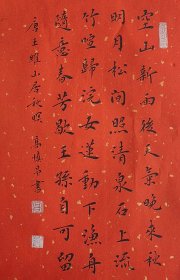 空山新雨後天氣晚來秋
明月松间照清泉石上流
竹喧歸浣女蓮動下漁舟
隨意春芳歇王孫自可留
唐王維山居秋暝